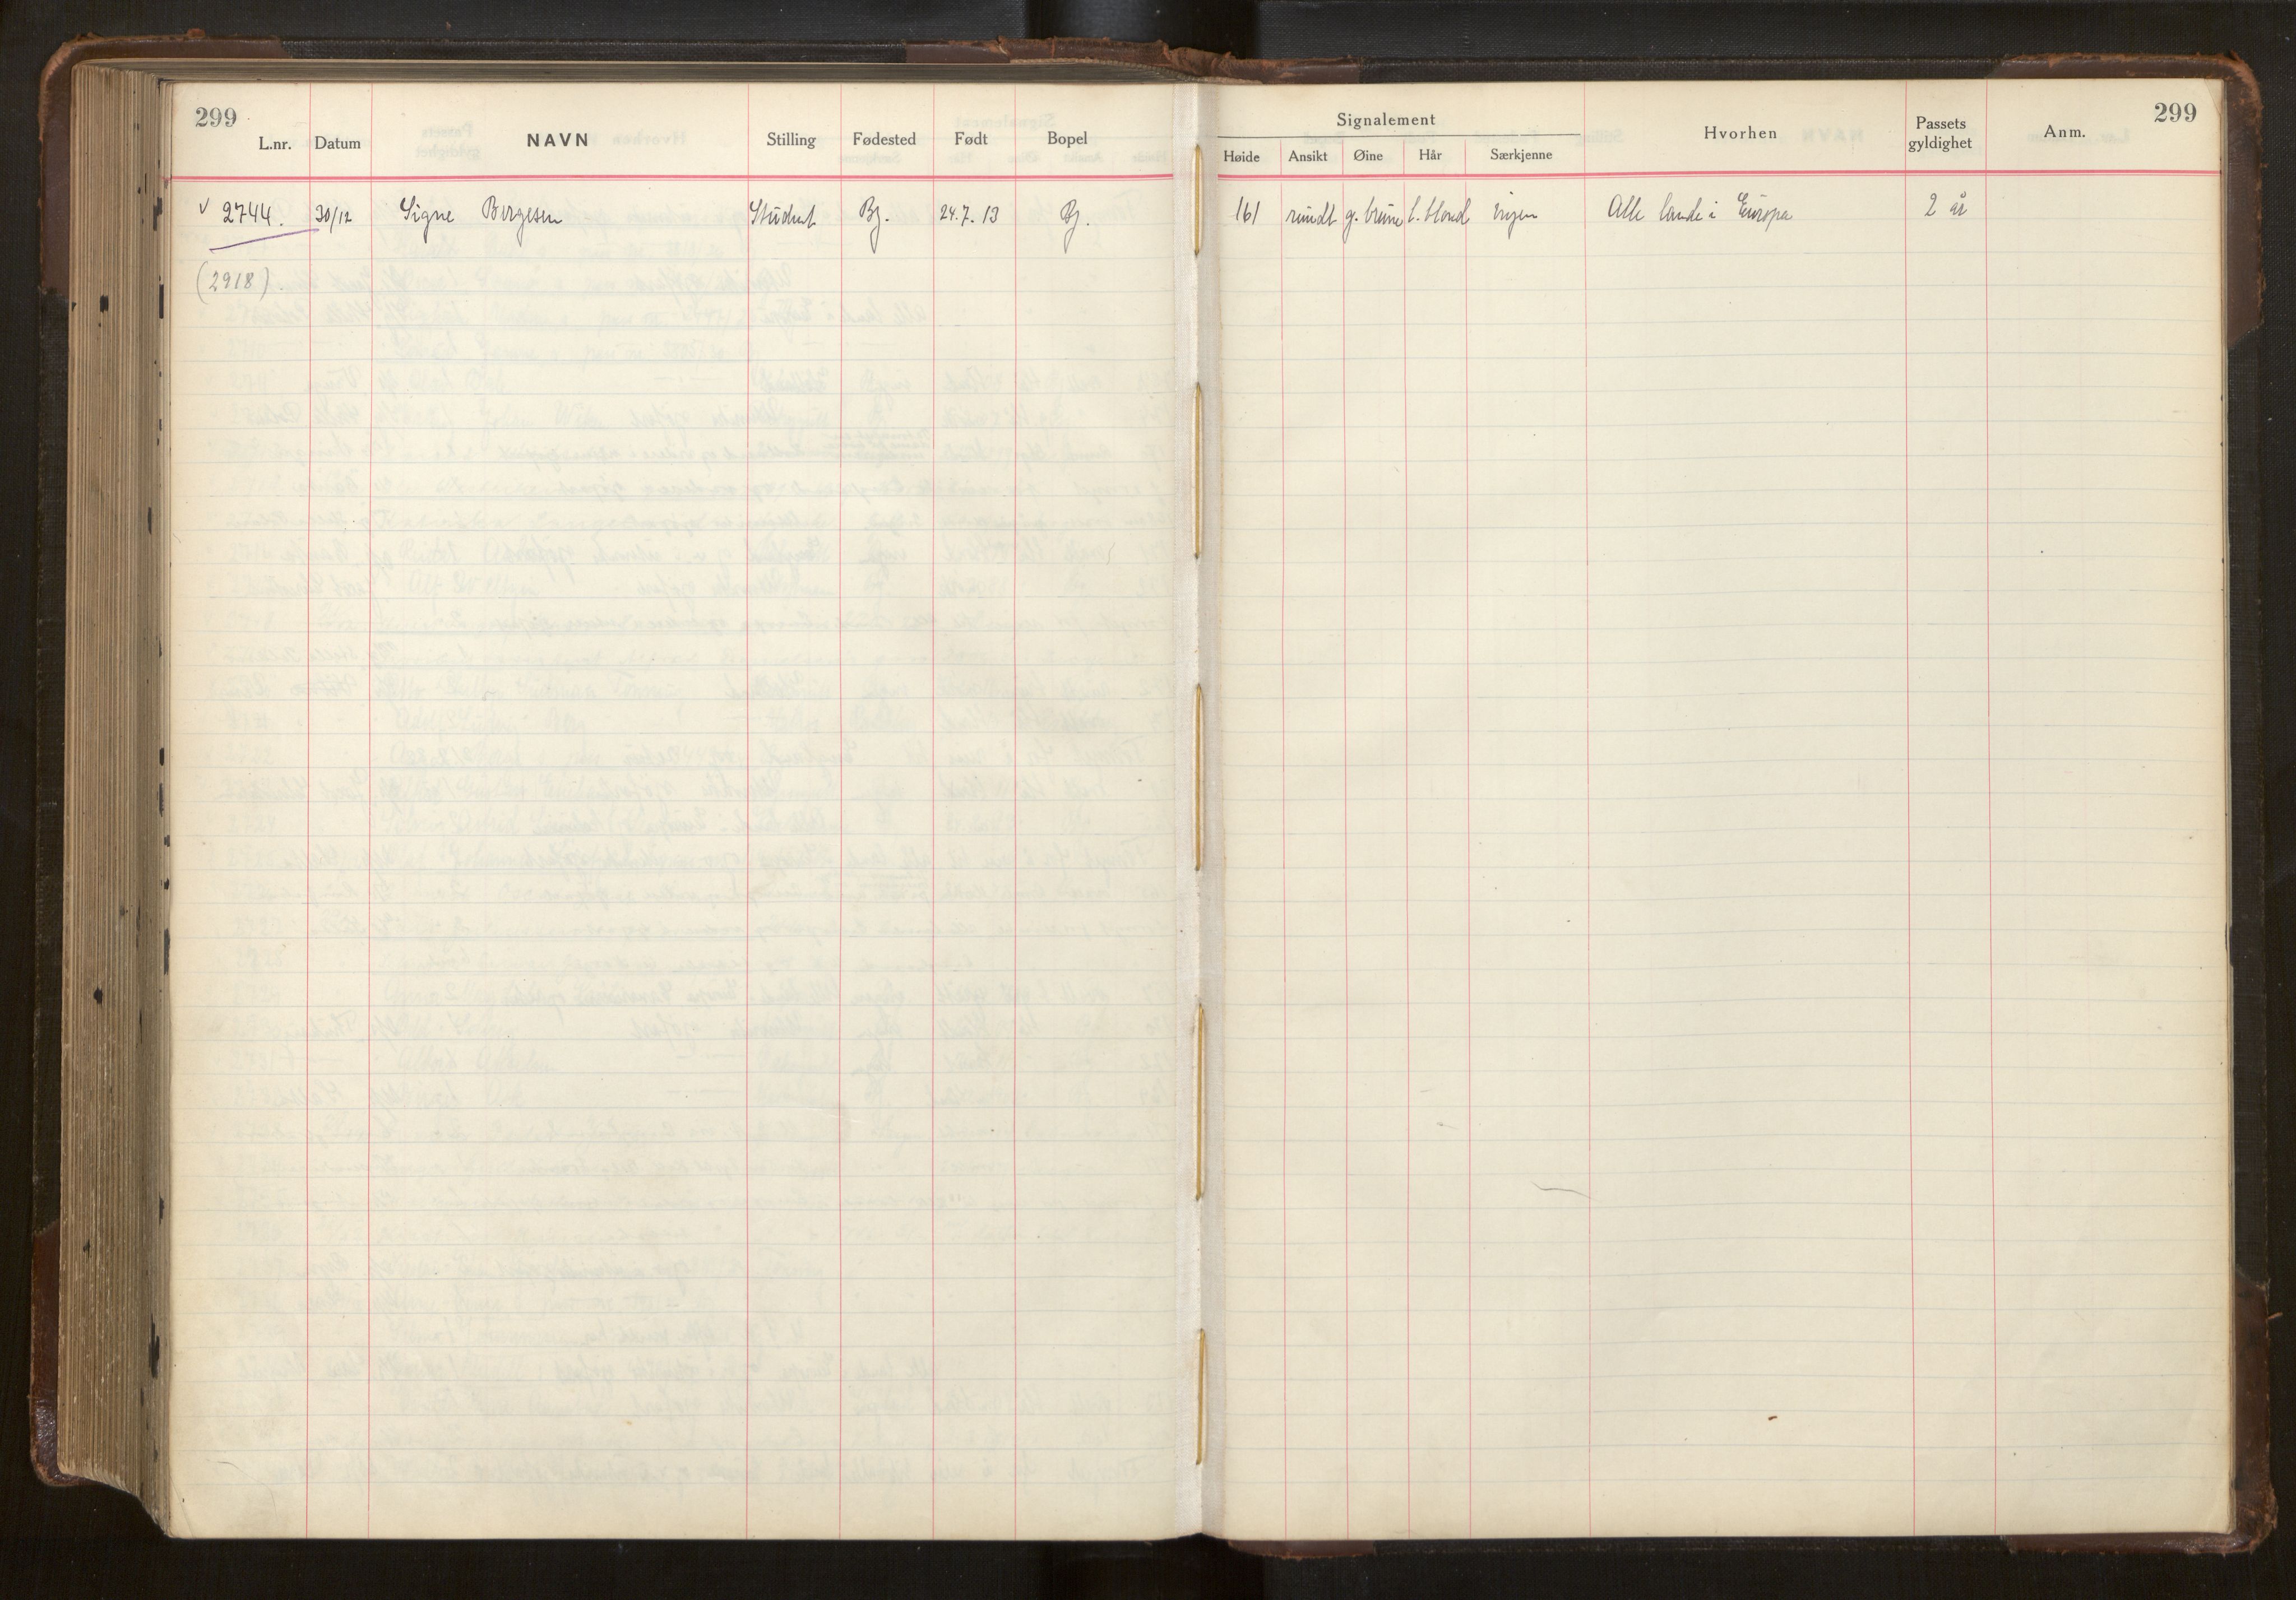 299
L.nr. Datum NAVN Stilling Fødested Født Bopel
Signalement
Høide Ansikt Øine Hår Særkjenne
Hvorhen
Passets gyldighet
Anm.
299
√ 2744. 30/12 Signe Bergesen Student Bg. 24.7.13 Bg. 161 rundt g. brune l. blond ingen Alle lande i Europa 2 år
(2918).